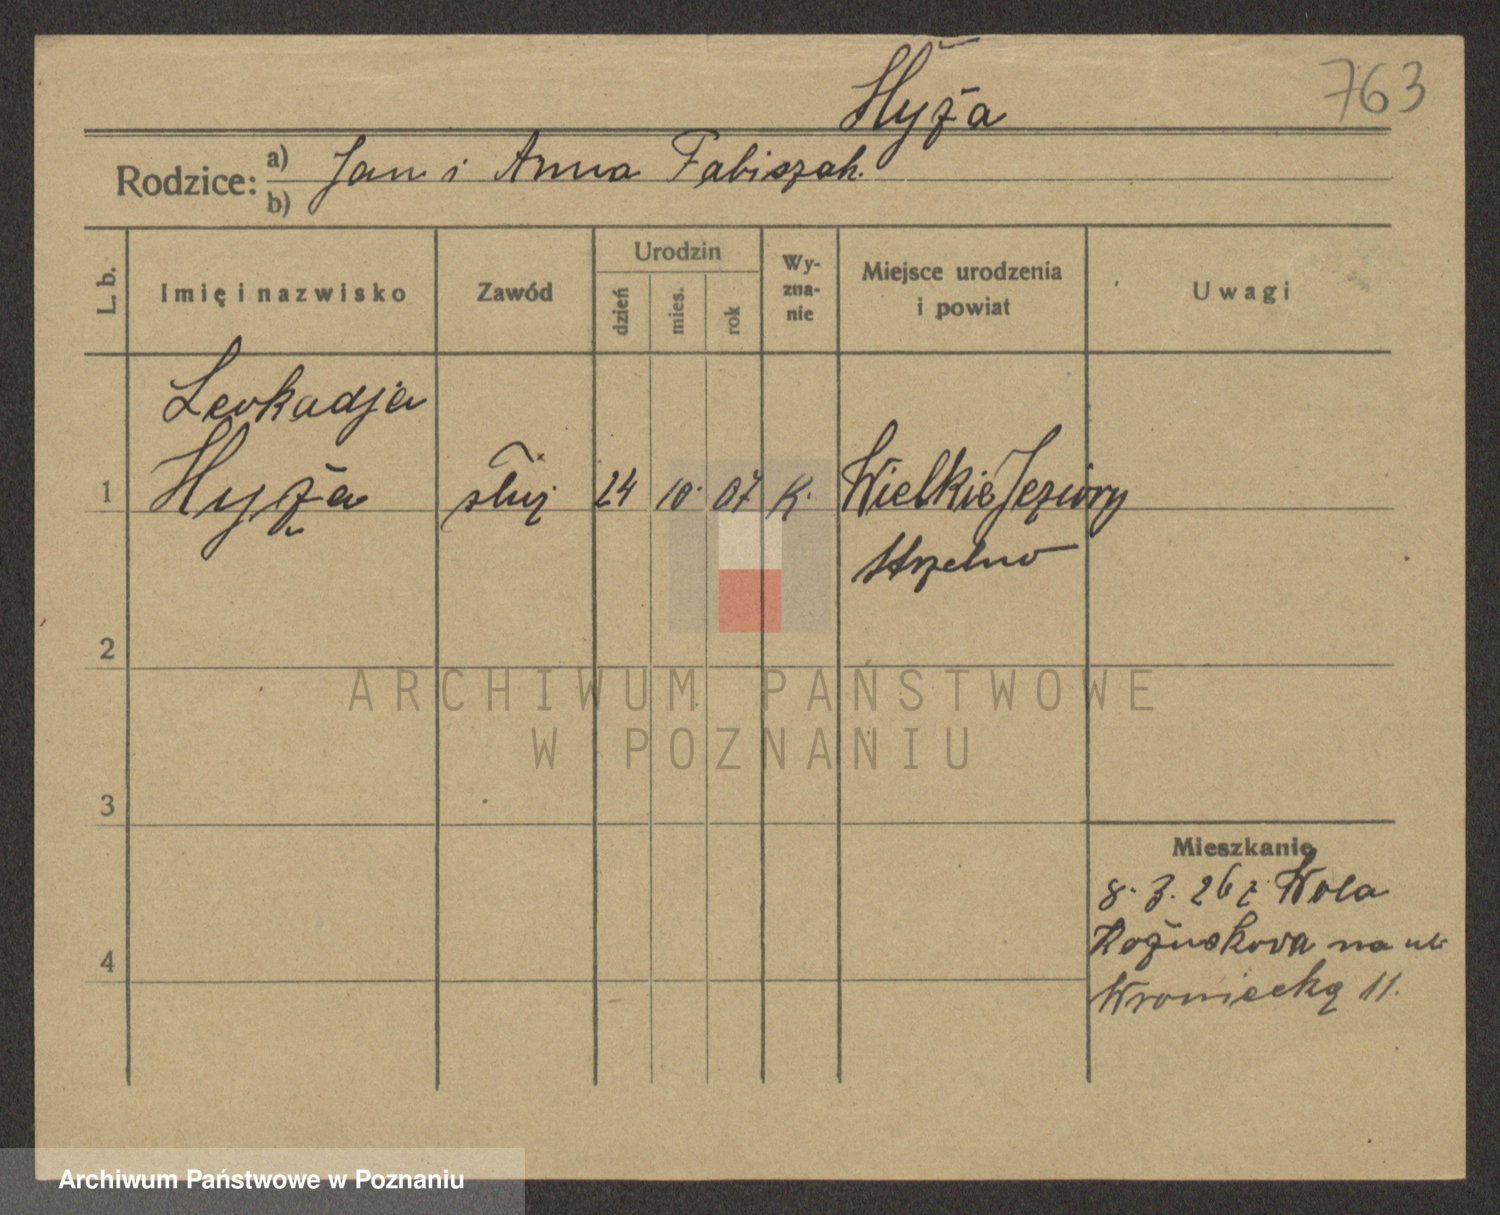 Hyża
763
Rodzice: a) Jan i Anna Fabiszak.
b)
L. b.
Imię i nazwisko
Zawód
Urodzin
dzień
mies.
rok
Wy-
zna-
nie
Miejsce urodzenia
i powiat
Uwagi
Leokadja
1 Hyża służ 24 10. 07 K. Wielkie Jeziory
Strzelno
2
3
4
Mieszkanie
8. 3. 26 z Wola
Kożuskova na ul.
Wroniecką 11.
ARCHIWUM PAŃSTWOWE
W POZNANIU
Archiwum Państwowe w Poznaniu